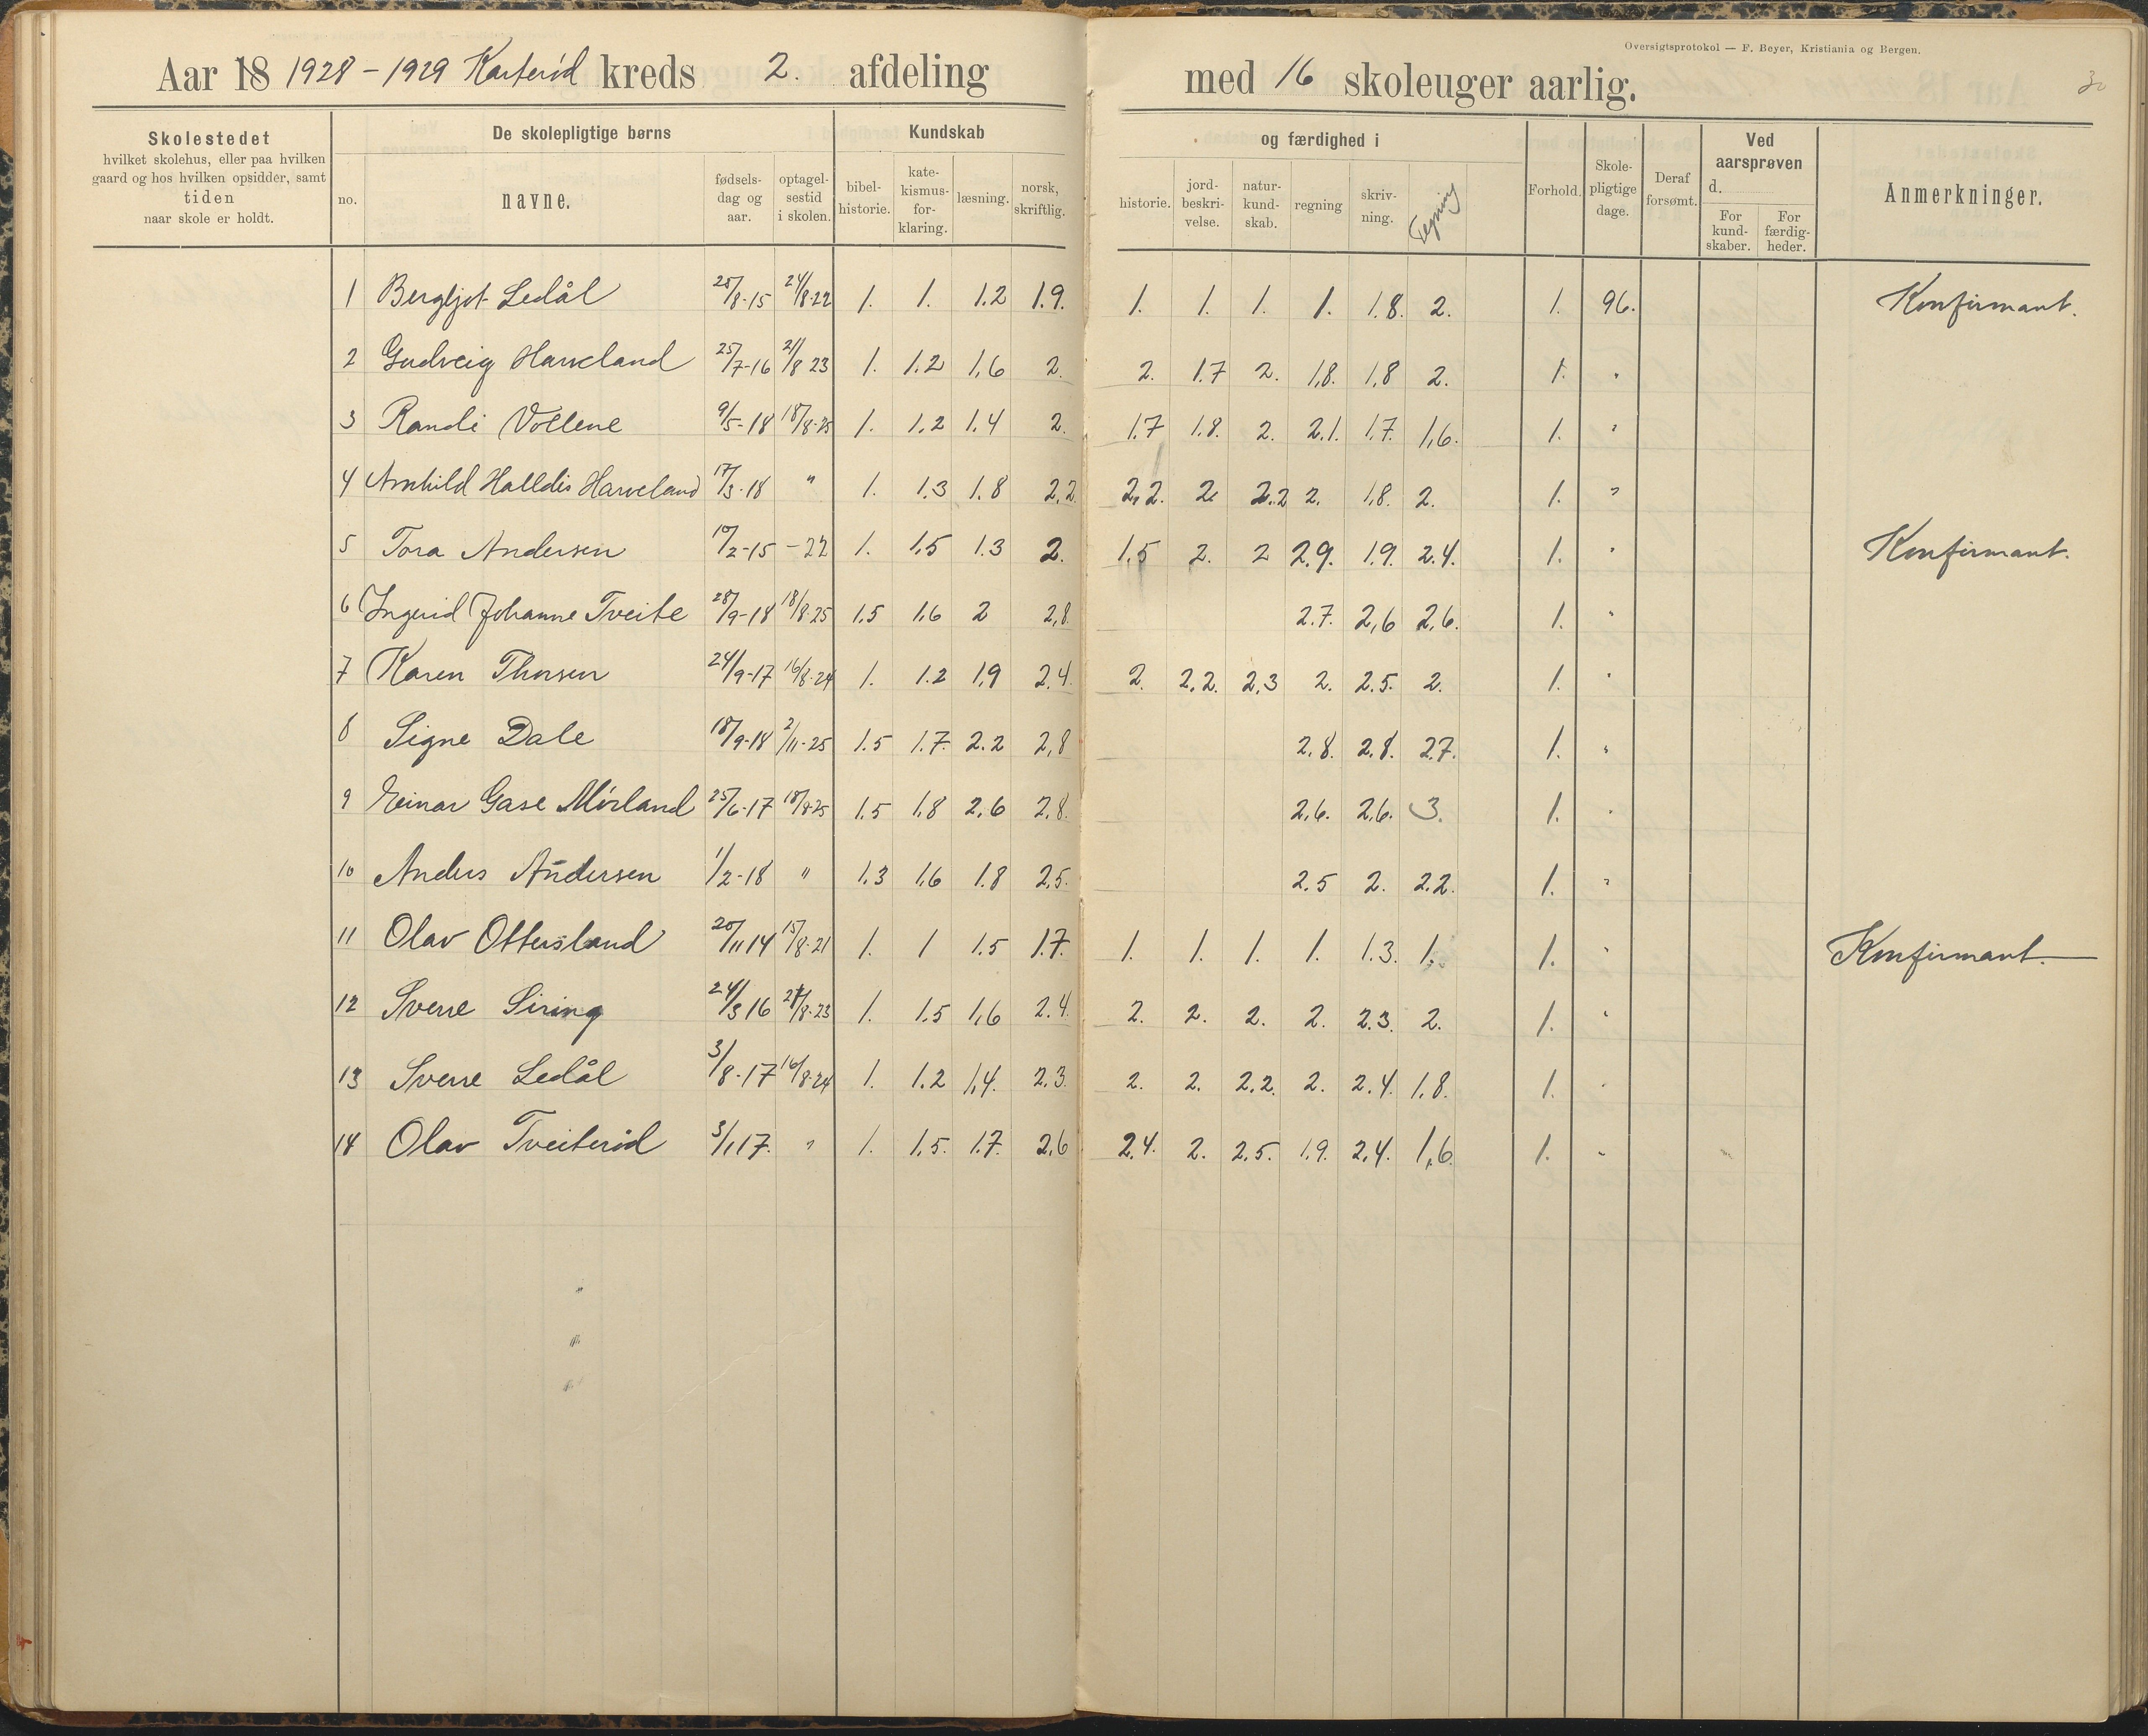 Oversigtsprotokol — F. Beyer, Kristiania og Bergen.
Aar 18 1928-1929 Karterød kreds 2. afdeling med 16 skoleuger aarlig. 30
Skolestedet hvilket skolehus, eller paa hvilken gaard og hos hvilken opsidder, samt tiden naar skole er holdt.
De skolepligtige børns
no. navne. fødselsdag og aar. optagelsestid i skolen.
Kundskab og færdighed i
bibelhistorie. katekismusforklaring. læsning. norsk, skriftlig. historie. jordbeskrivelse. naturkundskab. regning skrivning. Tegning
Forhold. Skolepligtige dage. Deraf forsømt.
Ved aarsprøven d. For kundskaber. For færdigheder.
Anmerkninger.
1 Bergljot Ledål 25/8-15 24/8-22 1. 1. 1.2 1.9. 1. 1. 1. 1. 1.8. 2. 1. 96. Konfirmant.
2 Gudveig Harveland 25/7-16 21/8 23 1. 1.2 1,6 2. 2. 1.7 2. 1,8. 1,8 2. 1. "
3 Randi Vollene 9/5-18 18/8-25 1. 1.2 1.4 2. 1.7 1.8. 2. 2.1. 1.7. 1,6. 1. "
4 Arnhild Halldis Harveland 17/3-18 " 1. 1.3 1.8 2,2. 2,2. 2 2.2 2. 1,8. 2. 1. "
5 Tora Andersen 10/2-15 -22 1. 1,5 1.3 2. 1.5 2. 2 2.9. 1.9. 2.4. 1. " Konfirmant.
6 Ingerid Johanne Tveite 28/9-18 18/8-25 1.5 1.6 2 2,8. 2.7. 2,6 2,6. 1. "
7 Karen Thorsen 24/9-17 16/8-24 1. 1.2 1,9 2,4. 2. 2,2. 2,3 2. 2.5. 2. 1. "
8 Signe Dale 18/9-18 2/11-25 1.5 1.7. 2.2 2,8 2.8. 2.8. 2.7. 1. "
9 Einar Gase Mörland 25/6-17 18/8-25 1.5 1,8 2.6 2,8. 2,6. 2,6. 3. 1. "
10 Anders Andersen 1/2-18 " 1.3 1,6 1.8 2,5. 2.5 2. 2.2. 1. "
11 Olav Ottersland 20/11 14 15/8-21 1. 1 1.5 1.7. 1. 1. 1. 1. 1.3. 1. 1. " Konfirmant.
12 Sverre Siring 24/3 16 21/8-23 1. 1.5 1,6 2.4. 2. 2. 2. 2. 2.3. 2. 1. "
13 Sverre Ledål 3/8-17 16/8-24 1. 1.2 1,4. 2.3. 2. 2. 2.2. 2. 2.4. 1.8. 1. "
14 Olav Tveiterød 3/1 17. " 1. 1.5. 1.7. 2,6 2.4. 2. 2.5. 1.9. 2,4. 1,6. 1. "